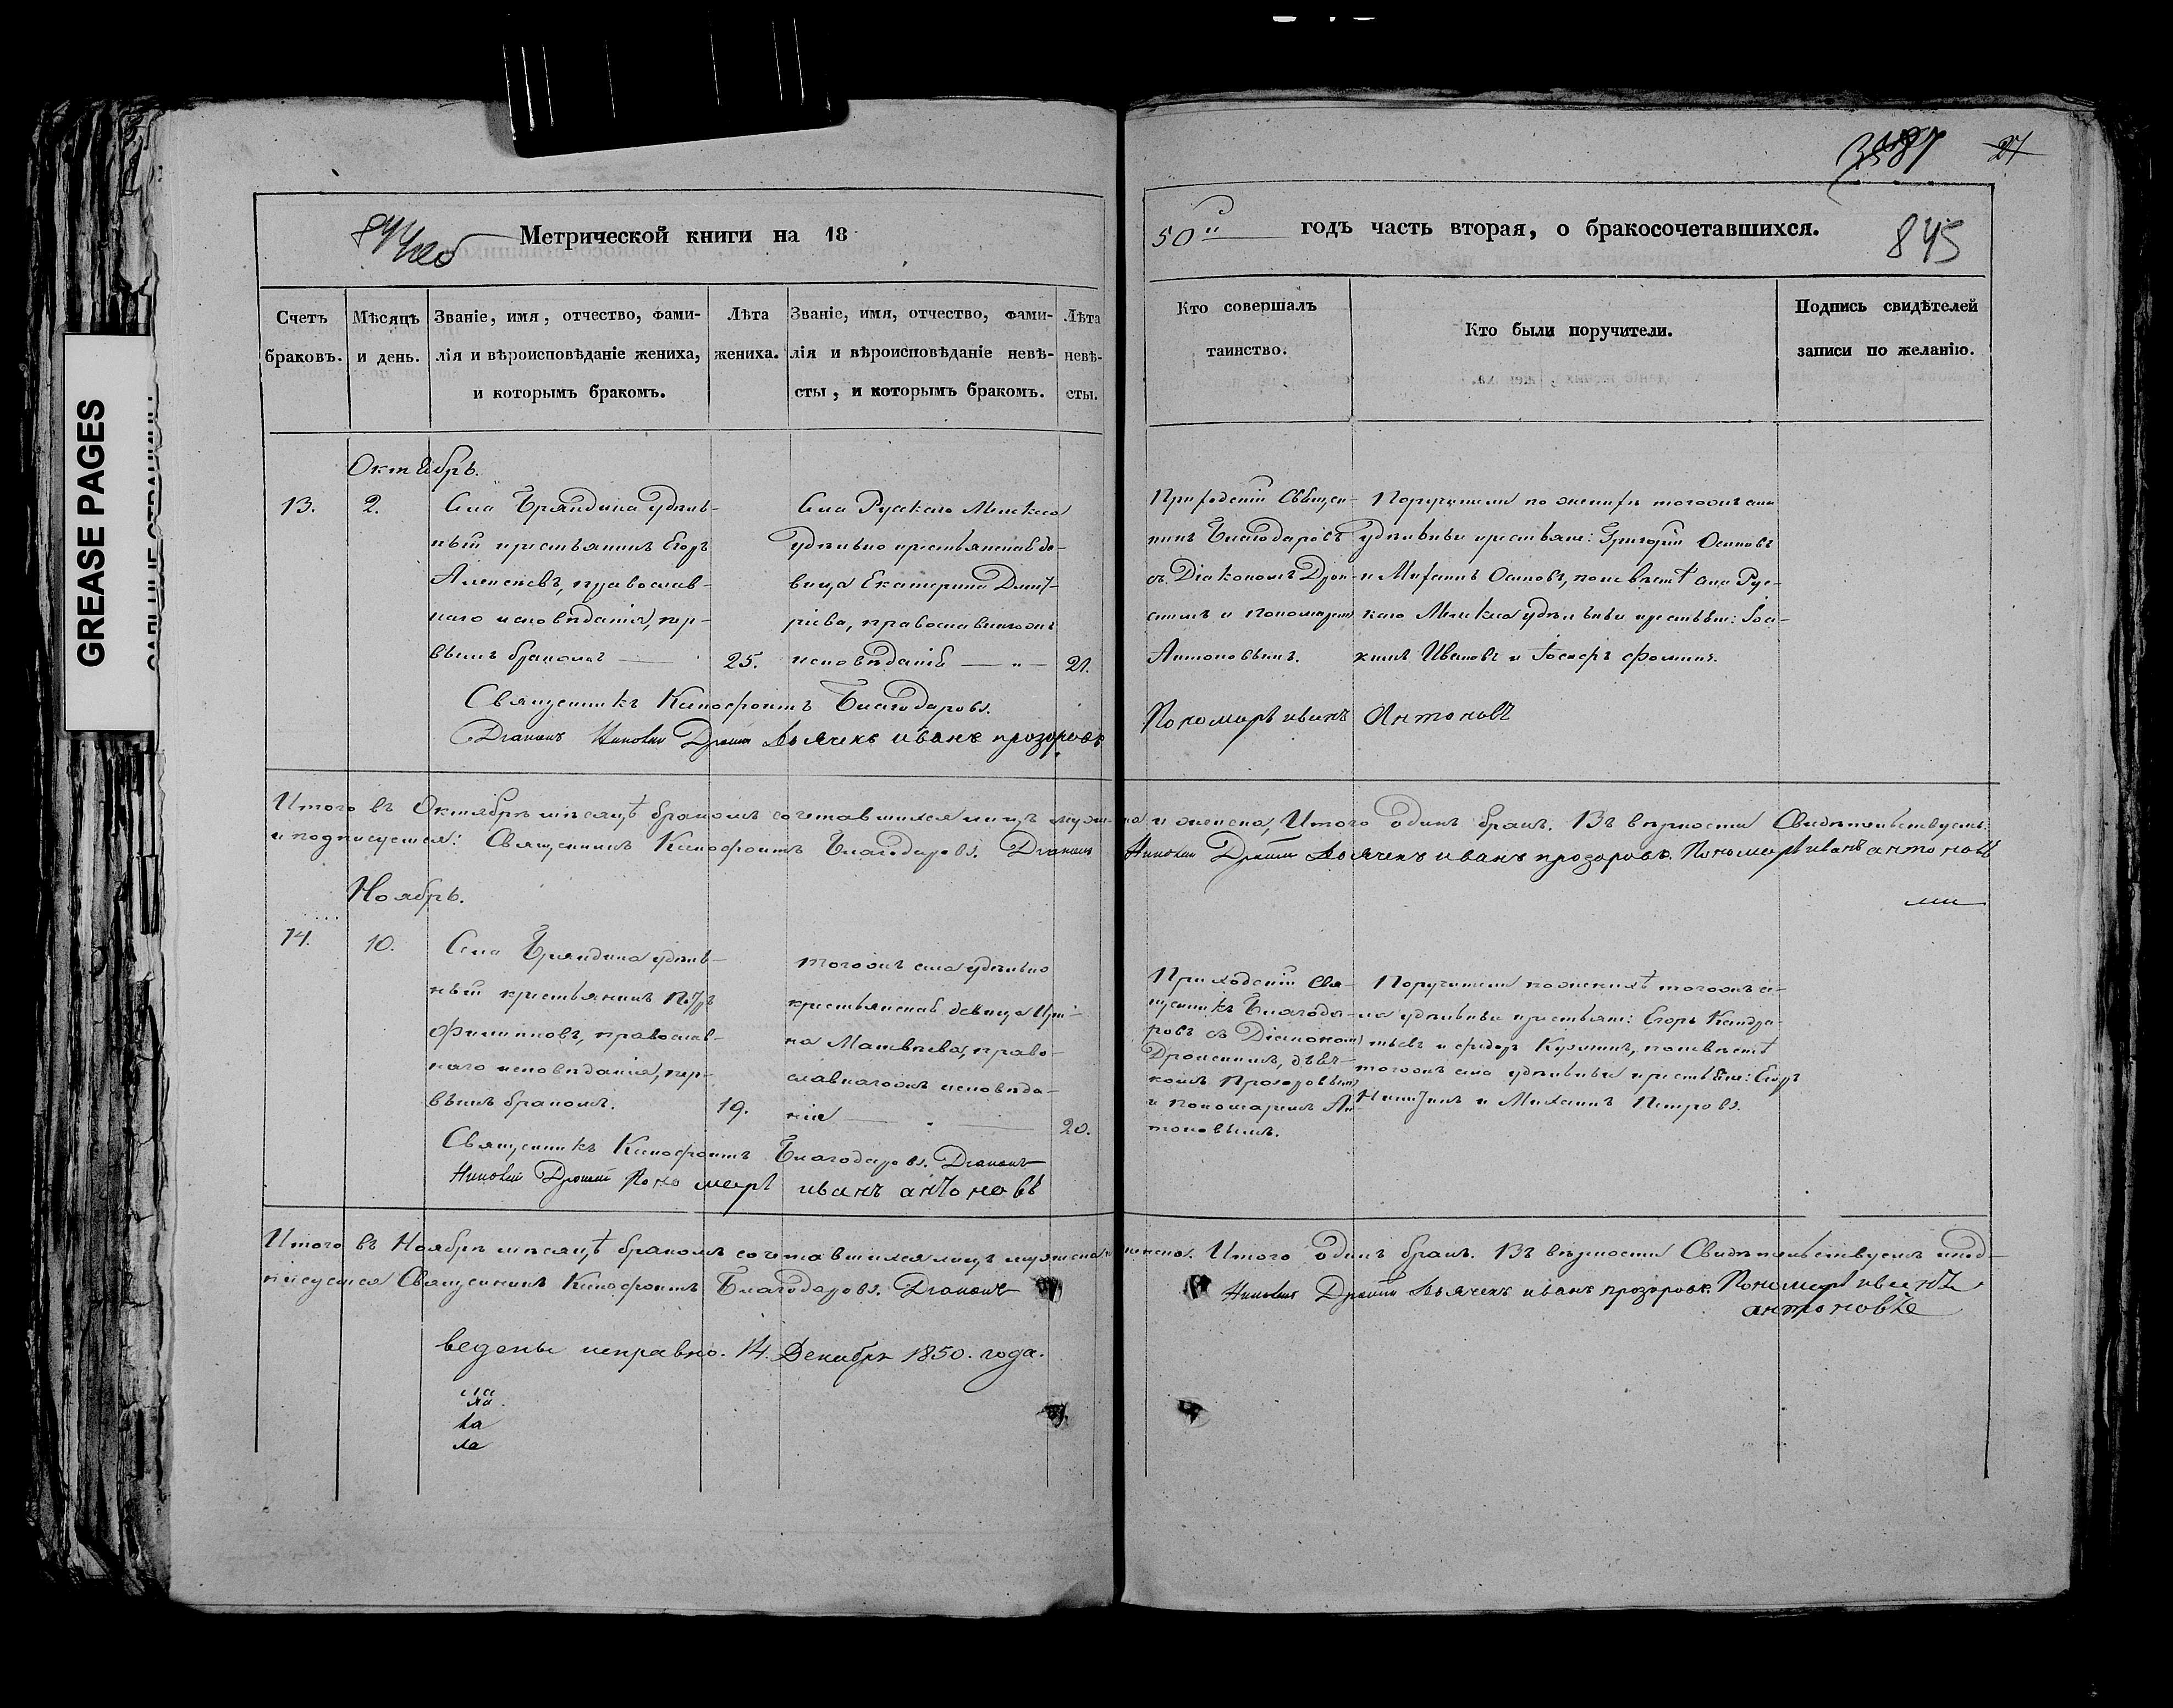 GREASE PAGES
Метрической книги на 18
50й годъ часть вторая, о бракосочетавшихся.
845
Счетъ браковъ.
Мѣсяцъ и день.
Званіе, имя, отчество, фами-
лія и вѣроисповѣданіе жениха,
и которымъ бракомъ.
Лѣта жениха.
Званіе, имя, отчество, фами-
лія и вѣроисповѣданіе невѣ-
сты, и которымъ бракомъ.
Лѣта невѣ-
сты.
Кто совершалъ
таинство.
Кто были поручители.
Подпись свидѣтелей
записи по желанію.
Октябрь.
13.
2.
Села Бряндина удѣль-
ный крестьянинъ Егоръ
Алексѣевъ, православ-
наго исповѣданія, пер-
вымъ бракомъ
25.
Села Русскаго Мелекеса
удѣльно крестьянская дѣ-
вица Екатерина Димит-
ріева, православнагожъ
исповѣданія
21.
Приходскій Священ-
никъ Благодаровъ
съ Діакономъ
и Пономаремъ
Антоновымъ.
Поручители по женихѣ тогожъ села
удѣльные крестьяне: Григорій Осиповъ
и Михаилъ Осиповъ, по невѣстѣ села Рус-
скаго Мелекеса удѣльные крестьяне:
Ивановъ и Іосифъ Фоминъ.
Священникъ Ксенофонтъ Благодаровъ.
Діаконъ Дьячекъ иванъ прозоровъ
Пономарь иванъ Антоновъ
Итого въ Октябрѣ мѣсяцѣ бракомъ сочетавшихся лицъ мужеска и женска, Итого одинъ бракъ. Въ вѣрности Свидѣтельствуемъ
и подписуемся: Священникъ Ксенофонтъ Благодаровъ. Діаконъ Дьячекъ иванъ прозоровъ. Пономарь иванъ антоновъ
Ноябрь.
14.
10.
Села Бряндина удѣль-
ный крестьянинъ Петръ
Филиповъ, православ-
наго исповѣданія, пер-
вымъ бракомъ.
19.
тогожъ села удѣльно
крестьянская девица Ири-
на Матвѣева, право-
славнагожъ исповѣда-
нія
20.
Приходскій Свя-
щенникъ Благода-
ровъ съ Діакономъ
дьяч-
комъ Прозоровымъ
и пономаремъ Ан-
тоновымъ.
Поручители по женихѣ тогожъ се-
ла удѣльные крестьяне: Егоръ Кондра-
тьевъ и Федоръ Кузминъ, по невѣстѣ
тогожъ села удѣльные крестьяне: Егоръ
Никитинъ и Михаилъ Петровъ.
Священникъ Ксенофонтъ Благодаровъ. Діаконъ
Пономарь иванъ антоновъ
Итого въ Ноябрѣ мѣсяцѣ бракомъ сочетавшихся лицъ мужеска и женска. Итого одинъ бракъ. Въ вѣрности Свидѣтельствуемъ и под-
писуемся Священникъ Ксенофонтъ Благодаровъ. Діаконъ Дьячекъ иванъ прозоровъ. Пономарь иванъ
антоновъ
ведены исправно. 14. Декабря 1850. года.